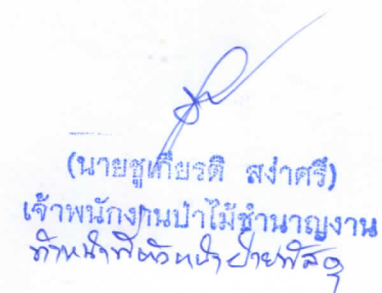 (นายชูเกียรติ สง่าศรี)
เจ้าพนักงานป่าไม้ชำนาญงาน
ทำหน้าที่หัวหน้าฝ่ายพัสดุ